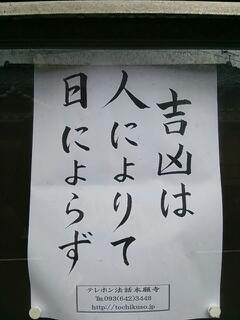 吉凶は
人によりて
日によらず
テレホン法話本願寺
℡093(642)3448
http://tochikuso.jp